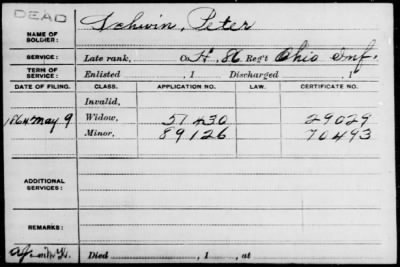 DEAD
NAME OF SOLDIER: Schwin, Peter
SERVICE: Late rank, Co. H, 86 Reg't Ohio Inf.
TERM OF SERVICE: Enlisted , 1 Discharged , 1
DATE OF FILING. CLASS. APPLICATION NO. LAW. CERTIFICATE NO.
Invalid,
1864 May 9 Widow, 51430 29029
Minor, 89126 70493
ADDITIONAL SERVICES:
REMARKS:
Died , 1 , at